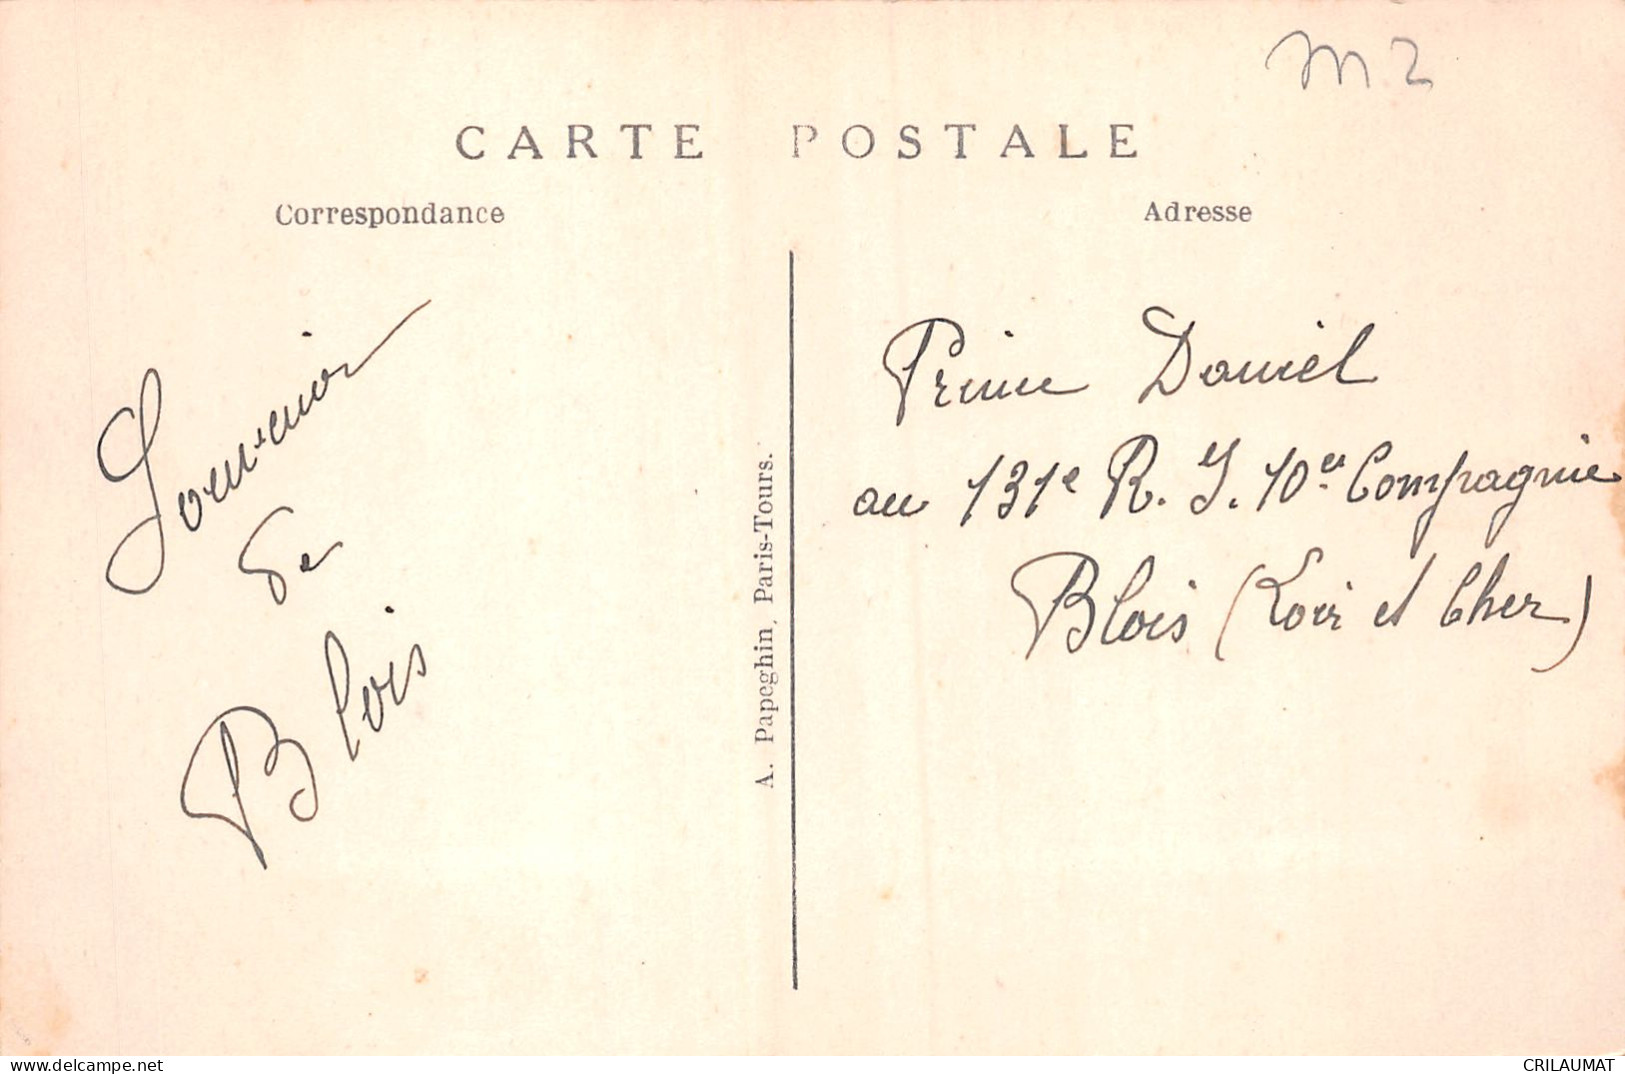 m 2
CARTE POSTALE
Correspondance
Adresse
Souvenir
de
Blois
A. Papeghin, Paris-Tours.
Daniel
au 131e R. I. 10e Compagnie
Blois (Loir et Cher)
delcampe.net
CRILAUMAT